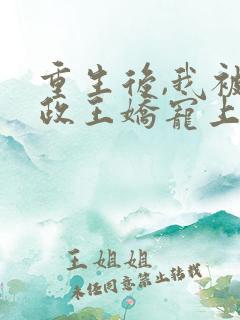 重生後,我被
政王嬌寵上
王姐姐
未經同意禁止轉載